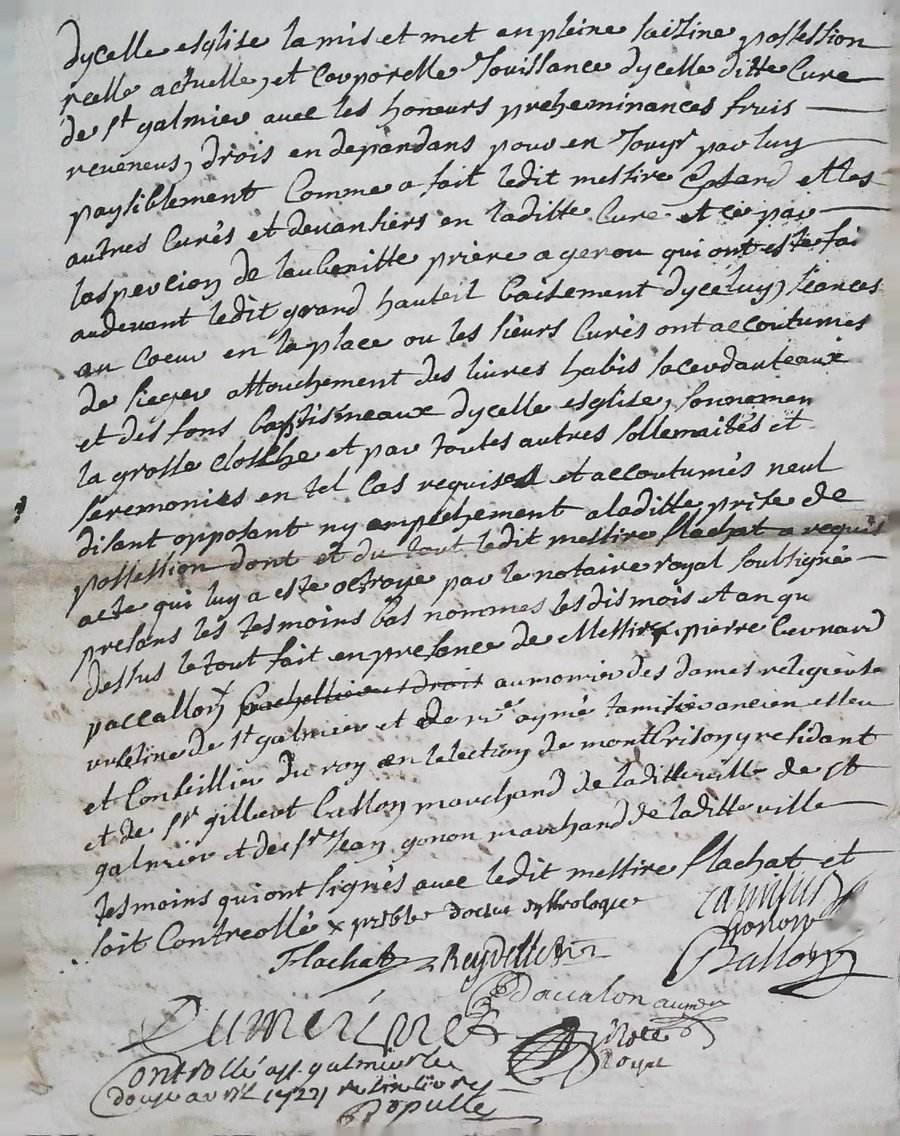 dycelle esglise la mis et met en pleine saizine possession
reelle actuelle, et corporelle Jouissance dycelle ditte Cure
de St galmier avec les honeurs preheminances fruis
reveneus, drois en depandans pour en Jouyr par luy
paysiblement Comme a fait ledit messire et les
autres Curés et devantiers en laditte Cure et ce par
laspercion de leau benitte prière a genou qui ont esté fai
audevant ledit grand hauteil baisement dyceluy, seances
au Coeur en la place ou les sieurs Curés ont accoutumés
de sieger attouchement des livres habis sacerdauteaux
et des fons baptismeaux dycelle esglise, sonnemen
la grosse closche et par toutes autres sollemnités et
seremonies en tel cas requises et accoutumés neul
disant opposant ny ampechement a laditte prise de
possession dont et du tout ledit messire flachat a requis
acte qui luy a esté octroye par le notaire royal soubsigné
presans les tesmoins bas nommes les dis mois et an qu
dessus le tout fait en presance de Messire x pierre
paccallon aumonier des dames religieuse
urseline de St galmier et de me aymé tamisier ancien esleu
et Conseillier du roy en lelection de montbrison y residant
et de sr gilbert ballon marchand de laditte ville de St
galmier et de sr Jean gonon marchand de laditte ville
tesmoins qui ont signés avec ledit messire flachat et
soit Controllé x prebtre docteur en theologie
Tamisier
Gonon
Flachat Reydellet
Ballon
Paccalon aumonier
Notre
Royal
Controllé a St galmier le
douze avril 1722 livre
Populle